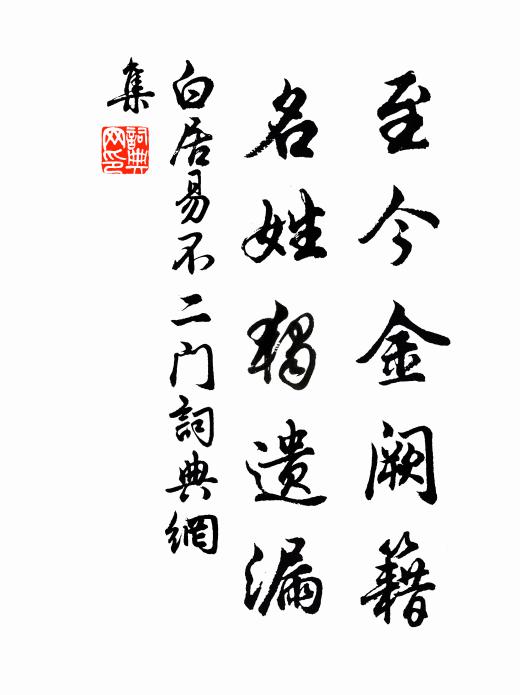 至今金阙籍
名姓獨遗漏
白居易不二门詞典網
集
詞典網印